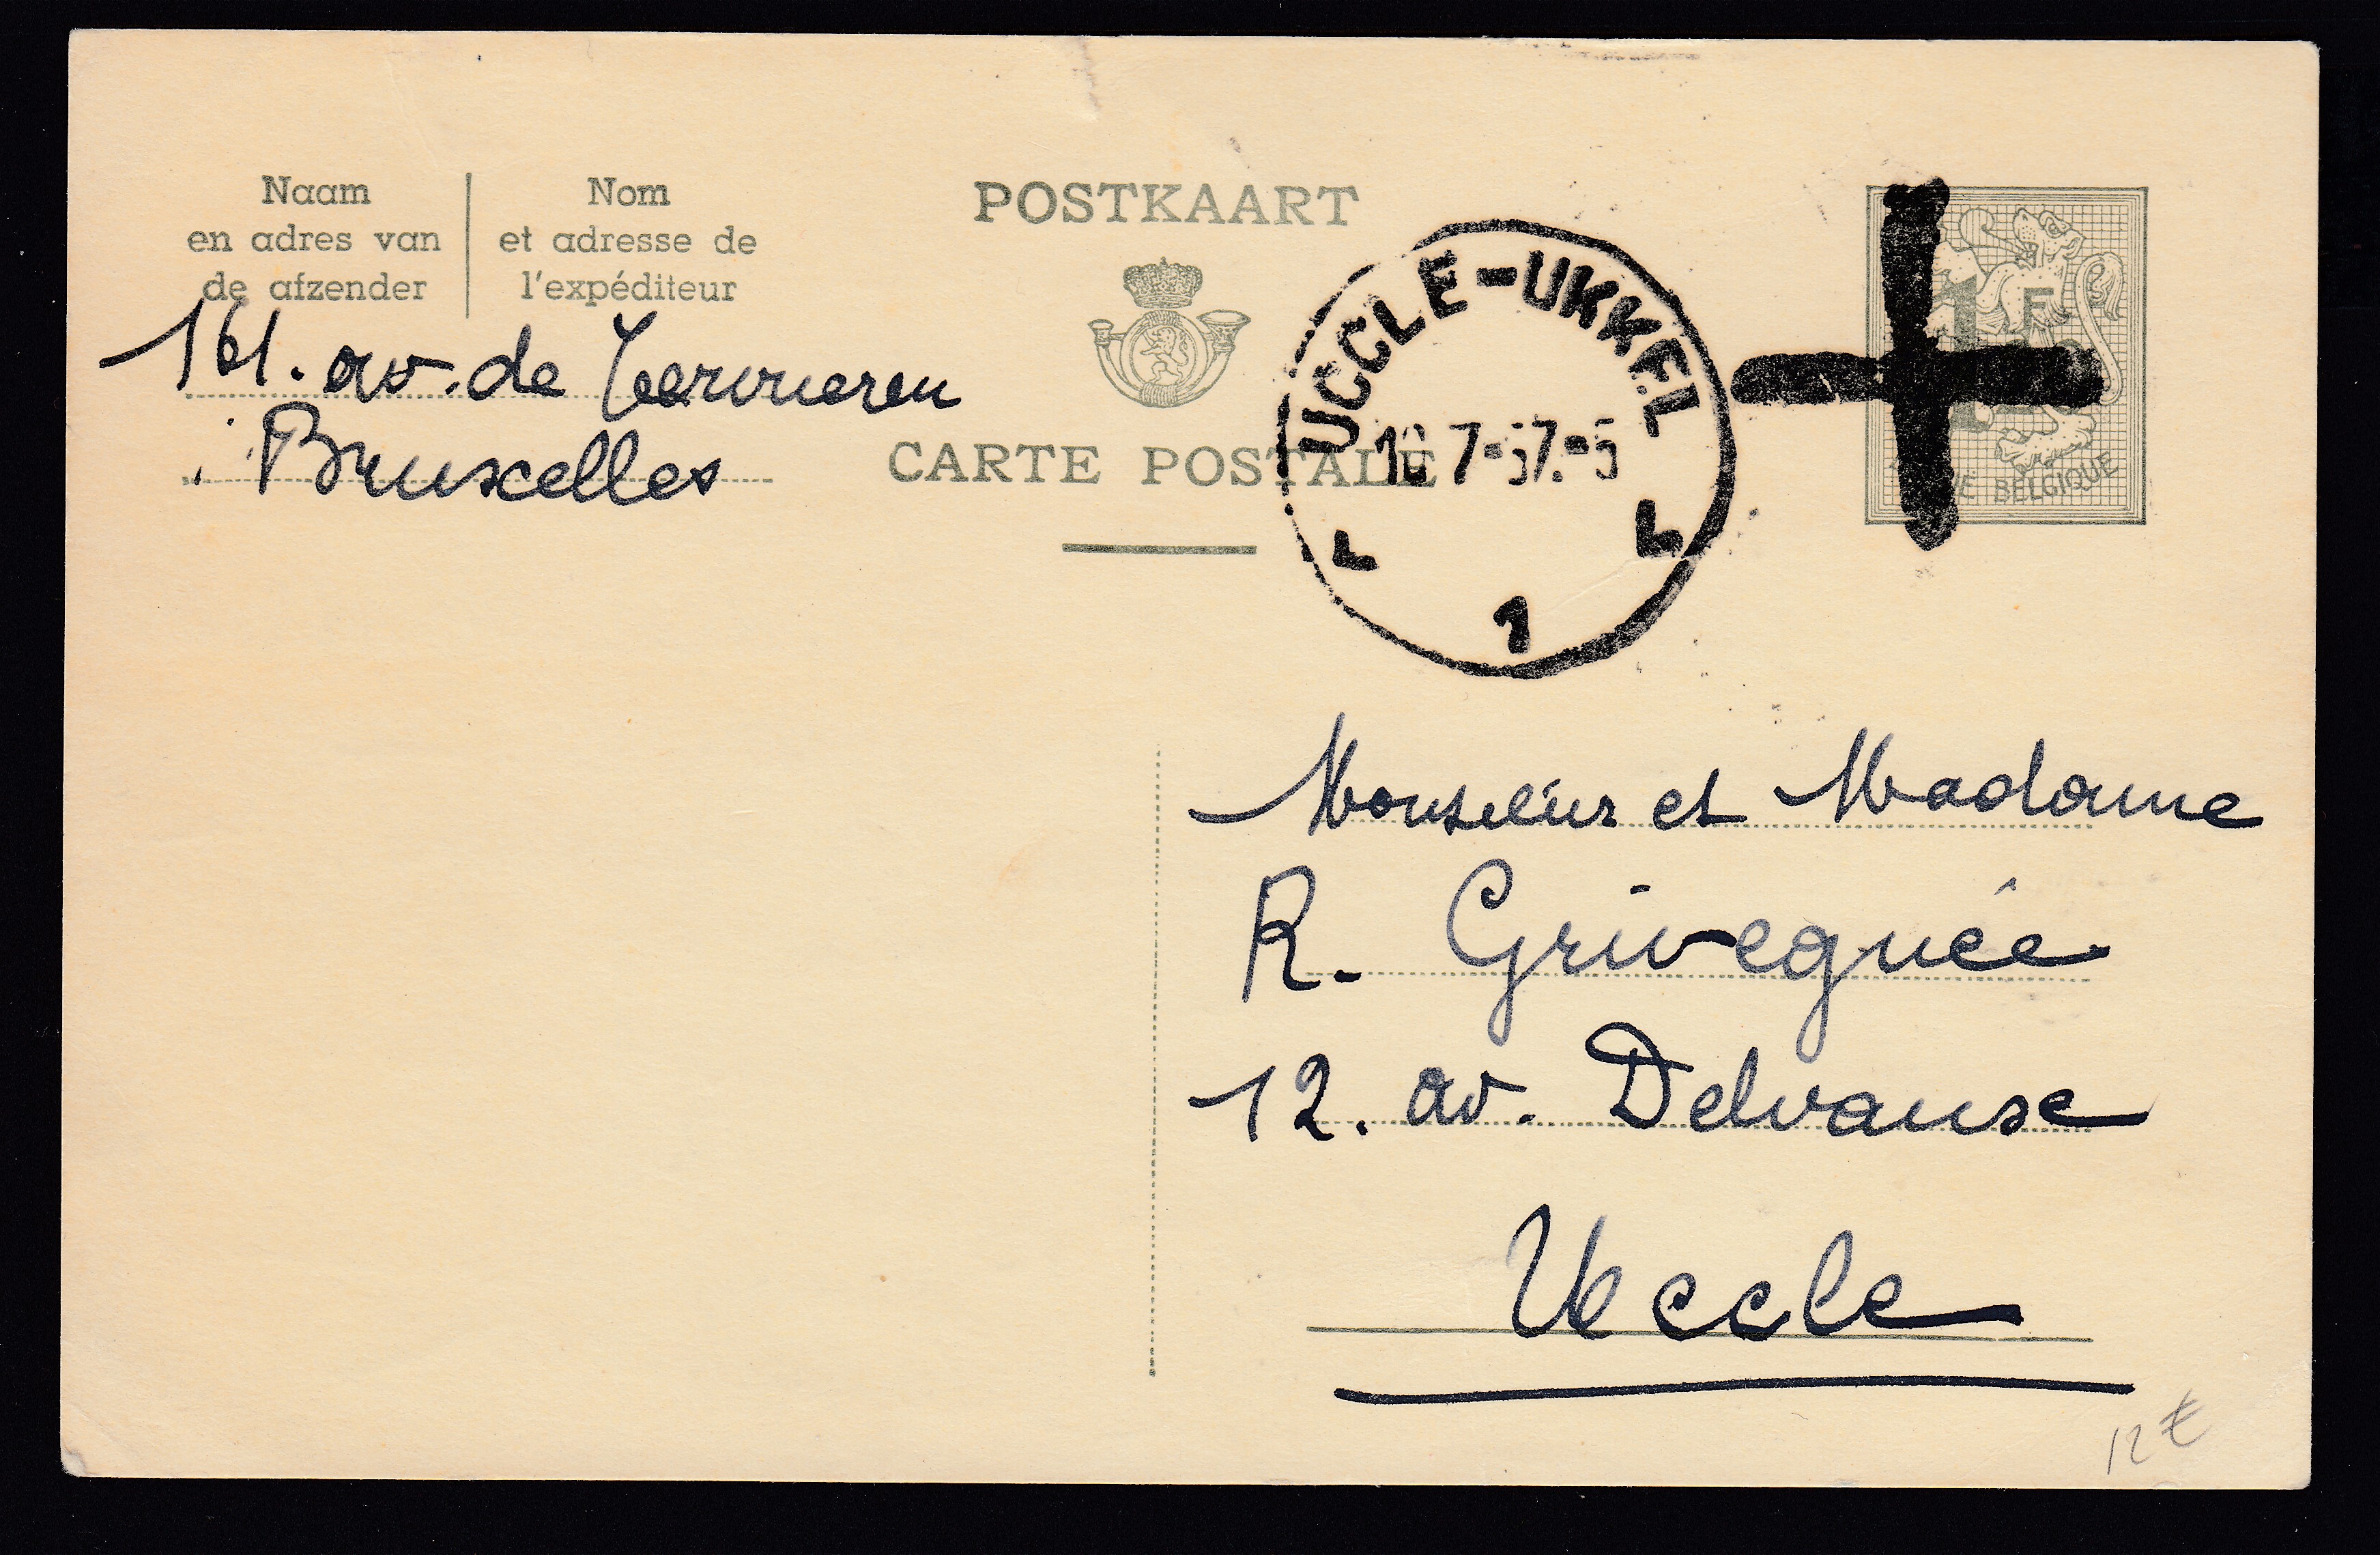 Naam
en adres van
de afzender
Nom
et adresse de
l'expéditeur
161. av. de Tervueren
Bruxelles
POSTKAART
CARTE POSTALE
UCCLE-UKKEL
7-57.-5
1
1 F
BELGIQUE
Monsieur et Madame
R. Grivegnée
12. av. Delvaux
Uccle
12 €